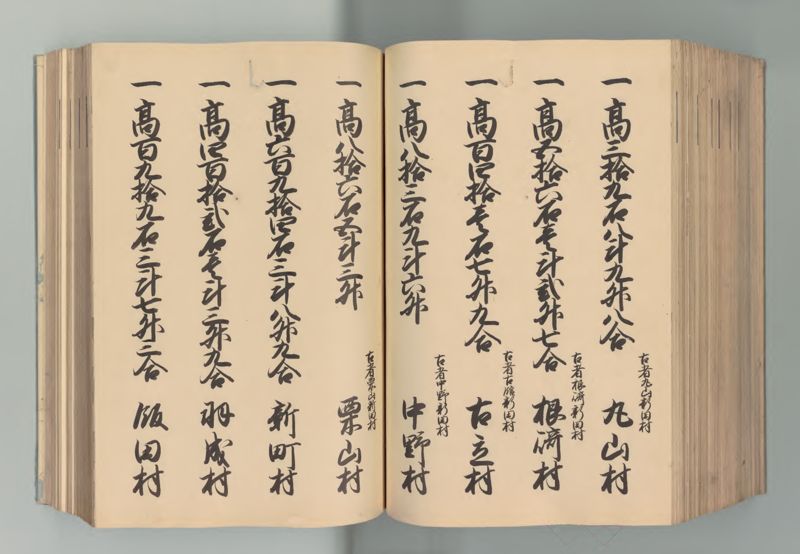 一高三拾九石八斗九升八合
古者丸山新田村
丸山村
一高五拾六石壱斗弐升七合
古者根崎新田村
根崎村
一高百四拾壱石七升九合
古者古 新田村
古立村
一高八拾三石九斗六升
古者中野新田村
中野村
一高八拾六石五斗三升
古者栗山新田村
栗山村
一高六百九拾四石三斗八升九合
新町村
一高四百拾弐石壱斗三升九合
羽成村
一高百九拾九石三斗七升二合
飯田村